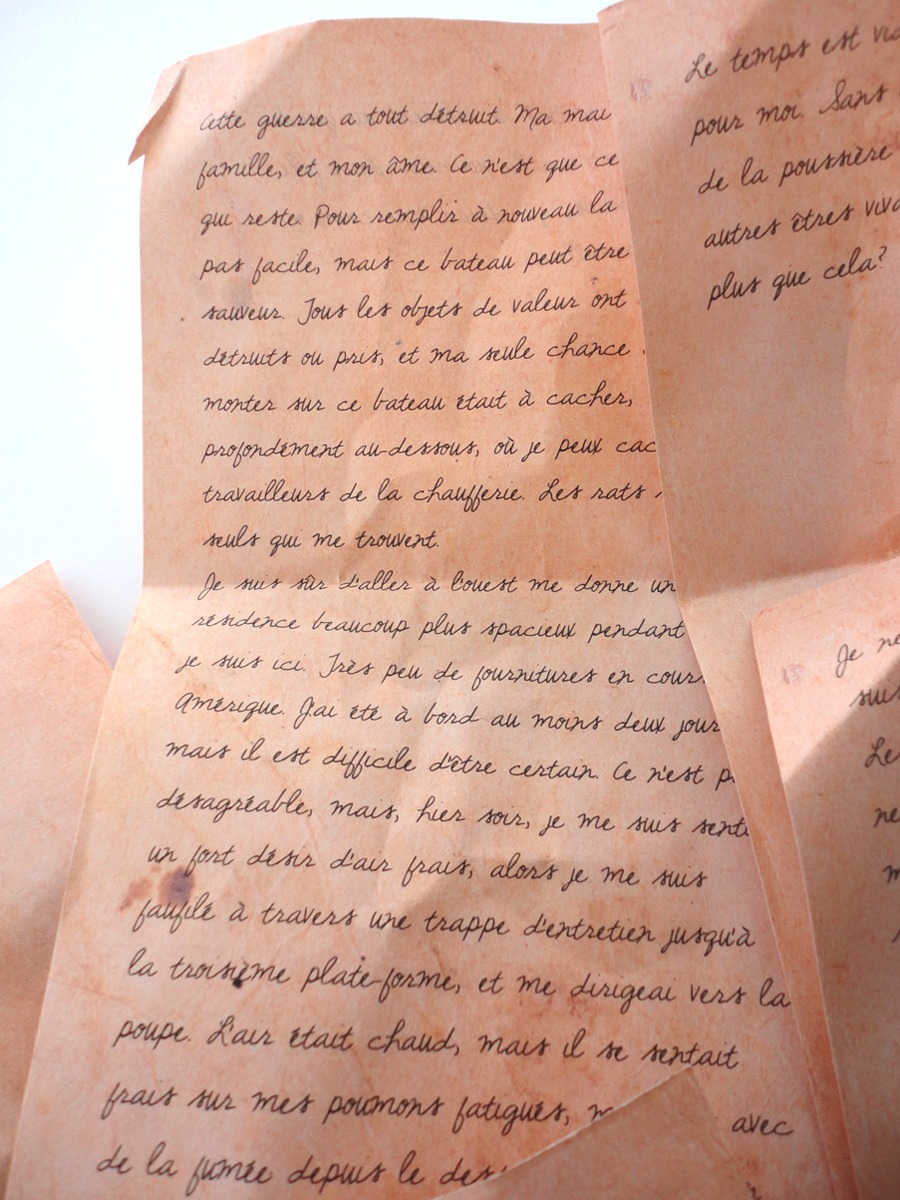 Cette guerre a tout détruit. Ma
famille, et mon âme. Ce n'est que ce
qui reste. Pour remplir à nouveau la
pas facile, mais ce bateau peut être
sauveur. Tous les objets de valeur ont
détruits ou pris, et ma seule chance
monter sur ce bateau était à cacher,
profondément au-dessous, où je peux
travailleurs de la chaufferie. Les rats
seuls qui me trouvent.
Je suis sûr d'aller à l'ouest me donne un
résidence beaucoup plus spacieux pendant
je suis ici. Très peu de fournitures en
Amérique. J'ai été à bord au moins deux
mais il est difficile d'être certain. Ce n'est
désagréable, mais, hier soir, je me suis
un fort désir d'air frais, alors je me suis
faufilé à travers une trappe d'entretien jusqu'à
la troisième plate-forme, et me dirigeai vers la
poupe. L'air était chaud, mais il se sentait
frais sur mes poumons fatigués, avec
de la fumée depuis le
Le temps est
pour moi. Sans
de la poussière
autres êtres
plus que cela?
Je